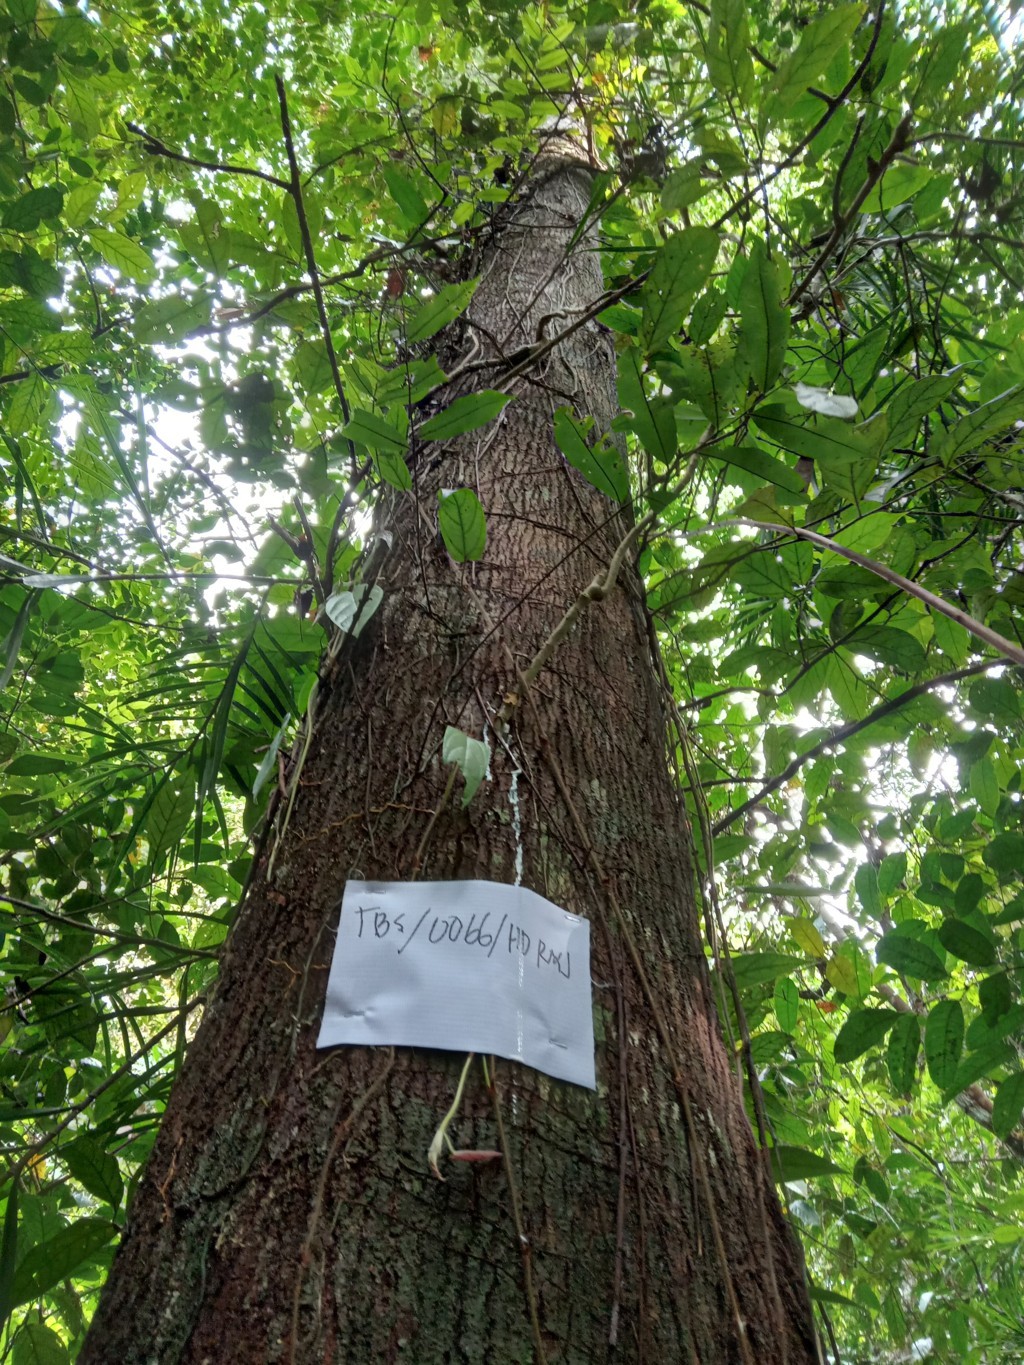 TBS/0066/HD RAJ